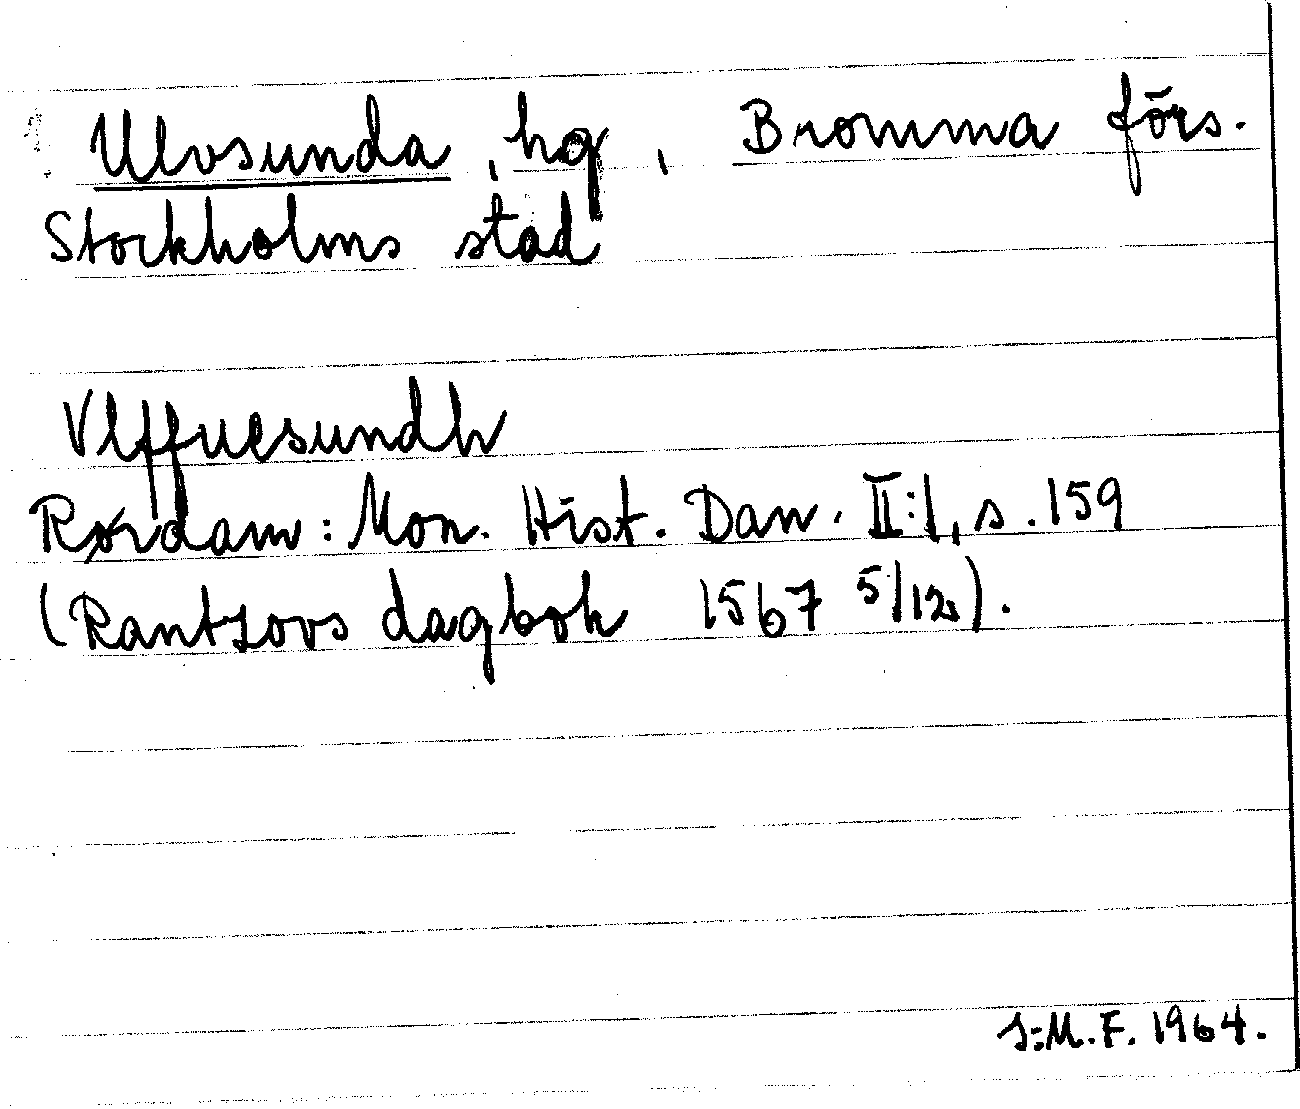 Ulvsunda, hg, Bromma förs.
Stockholms stad
Vlffuesundh
Rørdam: Mon. Hist. Dan. II:1, s. 159
(Rantzovs dagbok 1567 5/12).
S:M.F. 1964.